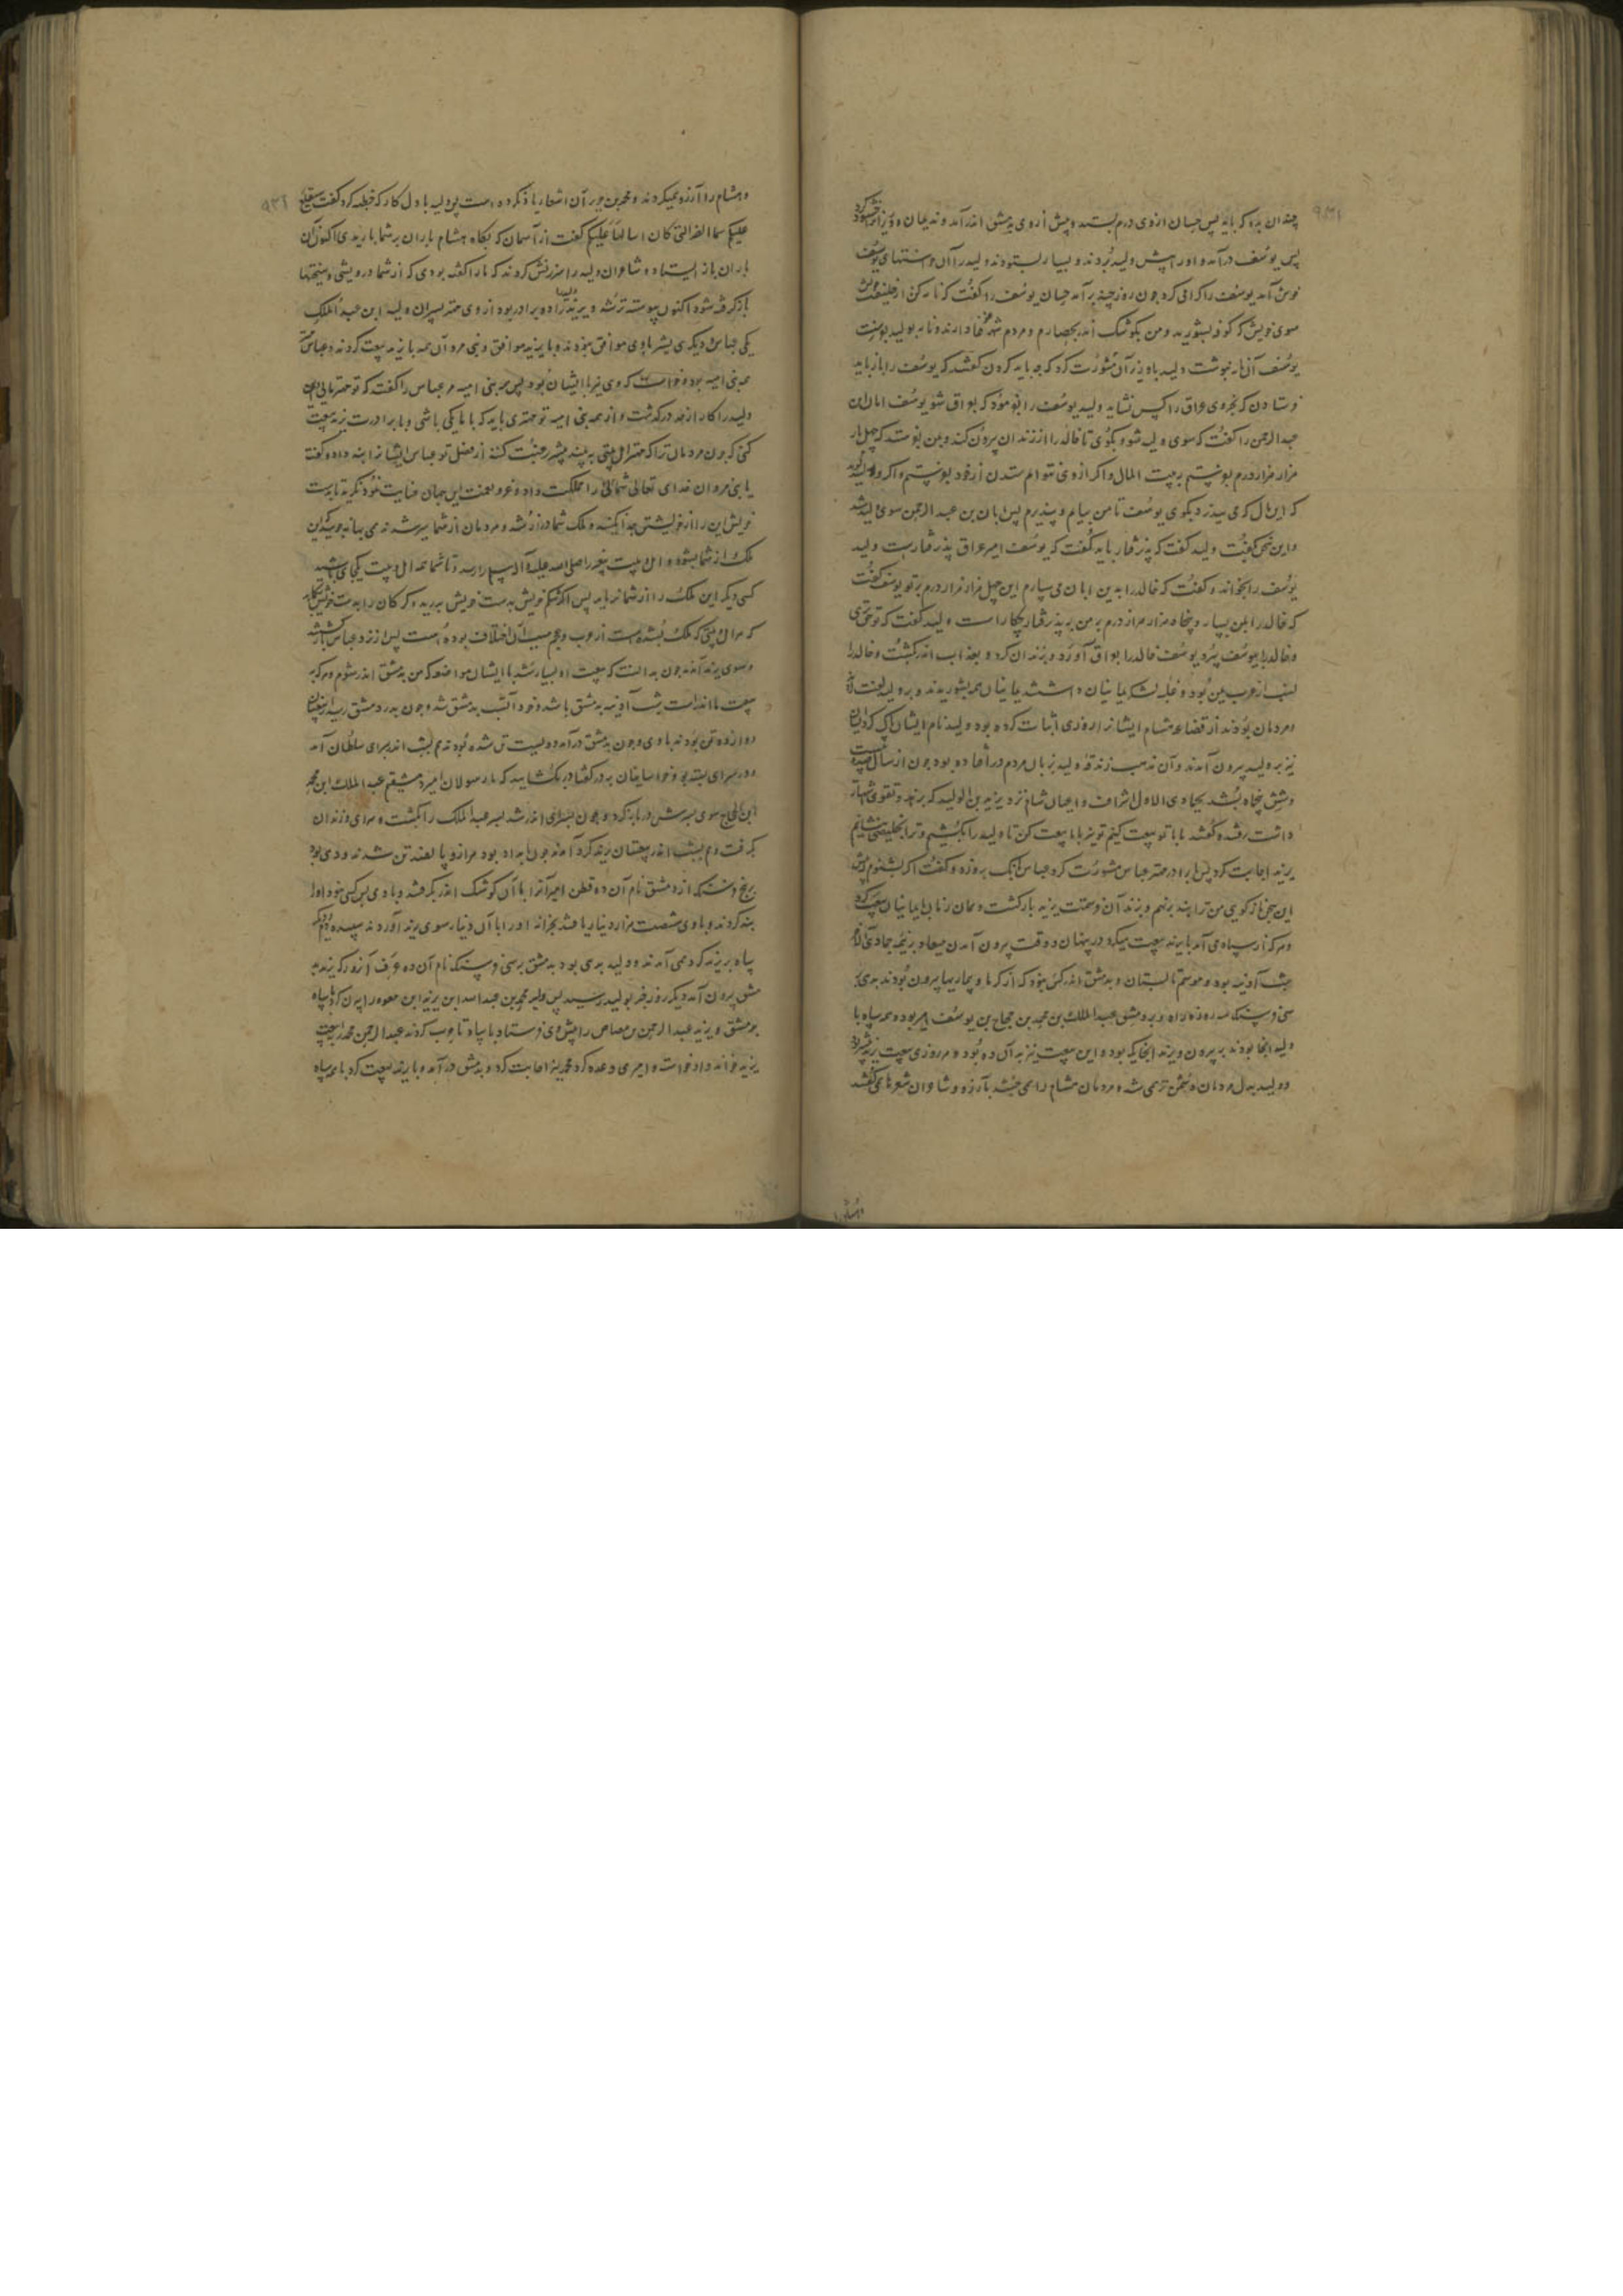 چندان بده که باید پس حسان ازوی درم بستد و پیش از وی بدمشق اندر آمد و ندیمان و وزیران را خشنود کرد
پس یوسف درآمد و اورا پیش ولید بردند و بسیار بستودند ولید را آن
خوش آمد یوسف را کرامی کرد چون روز چند برآمد حسان یوسف را کفت که نامه کن از خلیفت خویش
سوی خویش که کوفه بشورید و من بکوشک اندر بحصارم و مردم شهر
یوسف آن نامه نبوشت ولید با وزیر آن مشورت کرد که چه باید کردن کفتند که یوسف را باز باید
فرستادن که بجز وی عراق را کس نشاید ولید یوسف را بفرمود که بعراق شو یوسف ابان ابن
عبد الرحمن را کفت که سوی ولید شو و بکوی تا خالد را از زندان بیرون کند و بمن بفرستد که چهل بار
هزار هزار درم بفرستم به بیت المال و اکر از وی نتوانم ستدن از خود بفرستم و اکر ولید کوید
که این مال که می پذیرد بکوی یوسف تا من بیایم و بپذیرم پس ابان بن عبد الرحمن سوی ولید شد
و این سخن بکفت ولید کفت که پذرفتار باید کفت که یوسف امیر عراق پذرفتارست ولید
یوسف را بخواند و کفت که خالد را بدین ابان می سپارم این چهل هزار هزار درم بر تو یوسف کفت
که خالد را بمن بسپار و پنجاه هزار هزار درم بر من بپذیر بکار است ولید کفت که تو حق تری
و خالد را بیوسف سپرد یوسف خالد را بعراق آورد و بزندان کرد و بعذاب اندر بکشت و خالد را
نسب از عرب یمن بود و غلبه لشکر یمانیان داشتند یمانیان همه بشوریدند و بر ولید لعنت
و مردمان بودند از قضاعه هشام ایشانرا روزی اثبات کرده بود ولید نام ایشان پاک کرد ایشان
نیز بر ولید بیرون آمدند و آن مذهب زندقه ولید بزبان مردم در افتاده بود چون از سال صد و بیست
و شش پنجاه بشد بجمادی الاول اشراف و اعیان شام نزد یزید بن الولید که بزهد و تقوی
داشت رفتند و کفتند ما با تو بیعت کنیم تو نیز با ما بیعت کن تا ولید را بکشیم و ترا بخلیفتی بنشانیم
یزید اجابت کرد پس با برادر مهتر عباس مشورت کرد عباس بانک برو زد و کفت اکر بشنوم
این سخن باز کوی من ترا بند برنهم و بزندان فرستمت یزید بازکشت و همان زمان با یمانیان بیعت کرد
و هر که از سپاه می آمد با یزید بیعت میکرد در پنهان و وقت بیرون آمدن میعاد بنیمه جمادی الاخر
شب آدینه بود و موسم تابستان و بدمشق اندر کس نبود که از کرما و بیماریها بیرون بودند بدی
سی فرسنک سه روزه راه و بر دمشق عبد الملک بن محمد بن حجاج بن یوسف امیر بود و همه سپاه با
ولید آنجا بودند به بیرون و یزید آنجایکه بود و این بیعت نیز به آن ده بود و هر روزی بیعت یزید
و ولید بدل مردمان دشمن تر می شد و مردمان هشام را می جستند بآرزو و شاعران شعرها می کفتند
و هشام را آرزو همیکردند و محمد بن جریر آن اشعار یاد کرده است چو ولید باول کار که خطبه کرد کفت
علیکم سماء الضر التی کان اسالها علیکم کفت از آسمان که بکاه هشام باران بر شما باریدی اکنون آن
باران باز ایستاد و شاعران ولید را سرزنش کردند که ما را کفته بودی که از شما درویشی و سختیها
باز کرفته شود اکنون پیوسته تر شد و یزید را دو برادر بود از وی مهتر پسران ولید ابن عبد الملک
یکی عباس و دیکری بشر با وی موافق نبودند و با یزید موافق و بنی مروان همه با یزید بیعت کردند و عباس مهتر
همه بنی امیه بود و خواست که وی نیز با ایشان بود پس همه بنی امیه مر عباس را کفت که تو مهتر مایی و این
ولید را کار از حد درکذشت و از همه بنی امیه تو مهتری باید که با ما یکی باشی و با برادرت یزید بیعت
کنی که چون مردمان ترا که مهتر اهل بیتی به بینند بیشتر رغبت کنند از فضل تو عباس ایشانرا پند داد و کفت
یا بنی مروان خدای تعالی شمایان را مملکت داد و عز و نعمت این جهان عنایت نمود نکرید تا بدست
خویش این را از خویشتن جدا نکنید و ملک شما دراز شد و مردمان از شما سیر شدند می بهانه جویند که این
ملک از شما بشود و اهل بیت پیغمبر را صلی الله علیه و آله و سلم را رسد و تا شما همه اهل بیت یکجای باشید
کسی دیکر این ملک را از شما نرباید پس اکر شکم خویش بدست خویش بدرید
که هر اهل بیتی که ملک بشده است از عرب و عجم سبب آن اختلاف بوده است پس از نزد عباس بازکشتند
و سوی یزید آمدند چون بدانست که بیعت او بسیار شد با ایشان مواضعه کرد که من بدمشق اندر شوم و هر که به
بیعت ما اندر است شب آدینه به دمشق باشد و خود آن شب به دمشق شد و چون بدر دمشق رسید از بیعتیان
دوازده تن بودند با وی و چون بدمشق درآمد دویست تن شده بودند هم بشب اندر بدر سرای سلطان آمد
و در سرای بسته بود و خراسانیان بر در کفتا در بکشایید که ما رسولان امیر دمشقیم عبد الملک ابن محمد
ابن الحجاج سوی پدرش در باز کردند و چون بسرای اندر شد پسر عبد الملک را بکشت و سرای و زندان
بکرفت و هم بشب اندر بیعتیان یزید کرد آمدند چون بامداد بود هزار و پانصد تن شدند و دهی بود
بر پنج فرسنک از دمشق نام آن ده قطن امیر آنرا با آن کوشک اندر بکرفتند و با وی بس کس نبود او را
بند کردند و با وی شصت هزار دینار یافتند بخزانه اورا با آن دینار سوی یزید آوردند سپیده
سپاه بر یزید کرد همی آمدند و ولید بدهی بود به دمشق بر سی فرسنک نام آن ده
دمشق بیرون آمد دیکر روز خبر بولید رسید پس ولید محمد بن عبد الله ابن یزید ابن معویه را بیرون کرد با سپاه
بدر دمشق و یزید عبد الرحمن بن مصاص را پیش وی فرستاد با سپاه تا حرب کردند عبد الرحمن محمد را بیعت
یزید خواند و ازو خواست و امیری وعده کرد محمد نیز اجابت کرد و بدمشق درآمد و با یزید بیعت کرد با همه سپاه